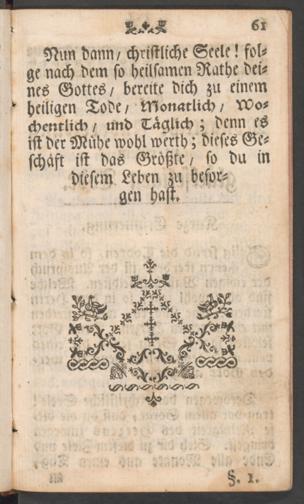 61
Nun dann, christliche Seele! fol-
ge nach dem so heilsamen Rathe dei-
nes Gottes, bereite dich zu einem
heiligen Tode, Monatlich, Wo-
chentlich, und Täglich; denn es
ist der Mühe wohl werth; dieses Ge-
schäft ist das Größte, so du in
diesem Leben zu besor-
gen hast.
§. 1.